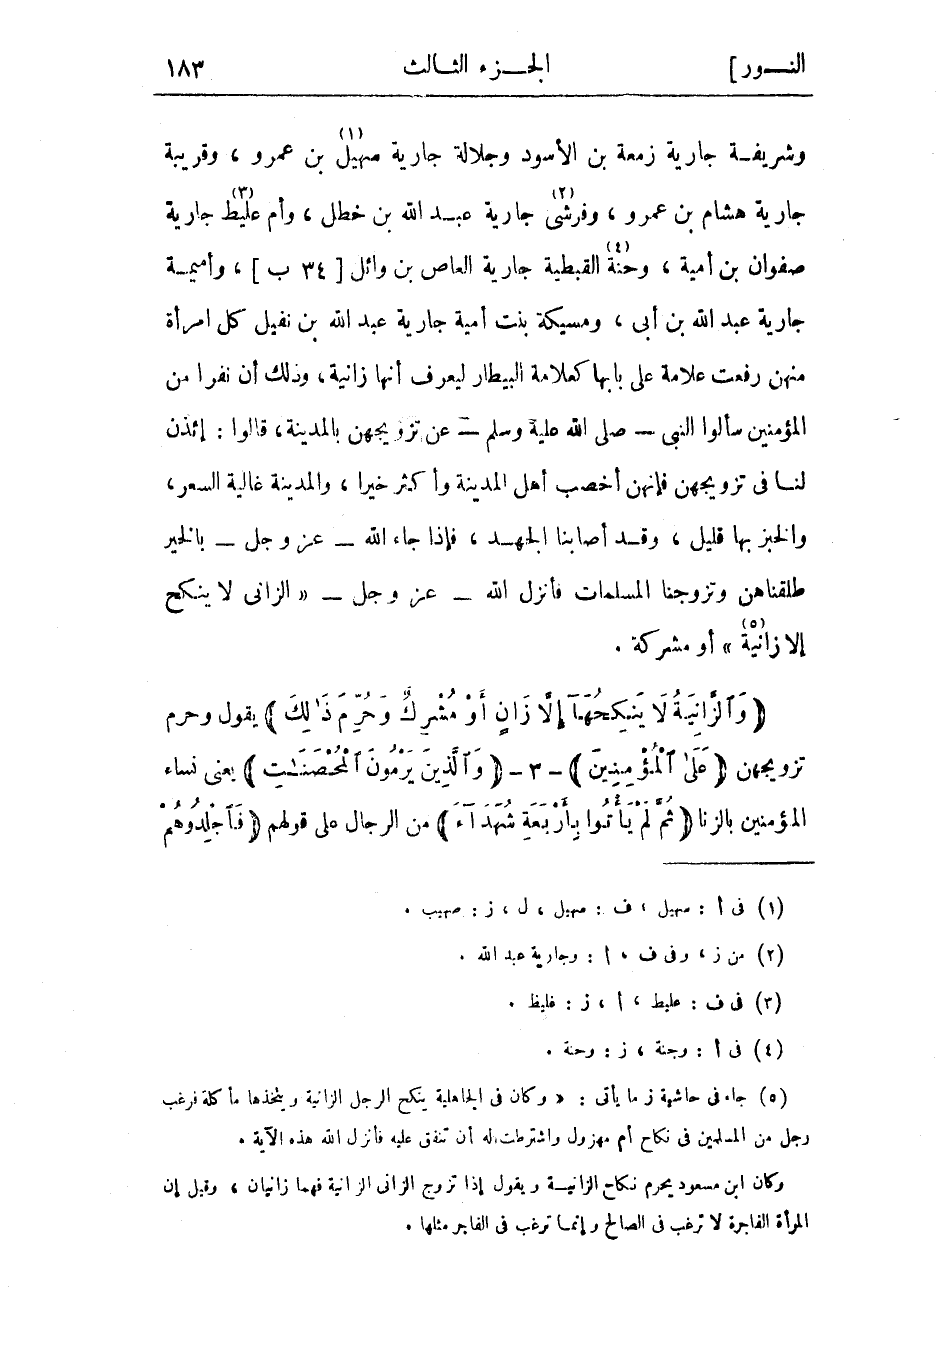 النـــور]	الجـــزء الثـالث	١٨٣
وشريفـة جارية زمعة بن الأسود وجلالة جارية سهيل(١) بن عمرو ، وقريبة
جارية هشام بن عمرو ، وفرشى(٢) جارية عبـد الله بن خطل ، وأم عليط(٣) جارية
صفوان بن أمية ، وحنة(٤) القبطية جارية العاص بن وائل [ ٣٤ ب ] ، وأميمـة
جارية عبد الله بن أبى ، ومسيكة بنت أمية جارية عبد الله بن نفيل كل امرأة
منهن رفعت علامة على بابها كعلامة البيطار ليعرف أنها زانية ، وذلك أن نفرا من
المؤمنين سألوا النبى — صلى الله علية وسلم — عن تزويجهن بالمدينة ، قالوا : إئذن
لنـا فى تزويجهن فإنهن أخصب أهل المدينة وأكثر خيرا ، والمدينة غالية السعر ،
والخبز بها قليل ، وقـد أصابنا الجهـد ، فإذا جاء الله — عز وجل — بالخير
طلقناهن وتزوجنا المسلمات فأنزل الله — عز وجل — « الزانى لا ينكح
إلا زانية(٥) » أو مشركة .
﴿ وَٱلزَّانِيَةُ لَا يَنكِحُهَآ إِلَّا زَانٍ أَوْ مُشْرِكٌ وَحُرِّمَ ذَٰلِكَ ﴾ يقول وحرم
تزويجهن ﴿ عَلَى ٱلْمُؤْمِنِينَ ﴾ - ٣ - ﴿ وَٱلَّذِينَ يَرْمُونَ ٱلْمُحْصَنَـٰتِ ﴾ يعنى نساء
المؤمنين بالزنا ﴿ ثُمَّ لَمْ يَأْتُوا بِأَرْبَعَةِ شُهَدَآءَ ﴾ من الرجال على قولهم ﴿ فَٱجْلِدُوهُمْ
(١) فى أ : سهيل ، ف : سهيل ، ل ، ز : صهيب .
(٢) من ز ، وفى ف ، أ : وجارية عبد الله .
(٣) فى ف : عليط ، أ ، ز : غليظ .
(٤) فى أ : وجنة ، ز : وحنة .
(٥) جاء فى حاشية ز ما يأتى : « وكان فى الجاهلية ينكح الرجل الزانية ويتخذها مأكلة فرغب
رجل من المسلمين فى نكاح أم مهزول واشترطت له أن تنفق عليه فأنزل الله هذه الآية .
وكان ابن مسعود يحرم نكاح الزانيـة ويقول إذا تزوج الزانى الزانية فهما زانيان ، وقيل إن
المرأة الفاجرة لا ترغب فى الصالح وإنمـا ترغب فى الفاجر مثلها .